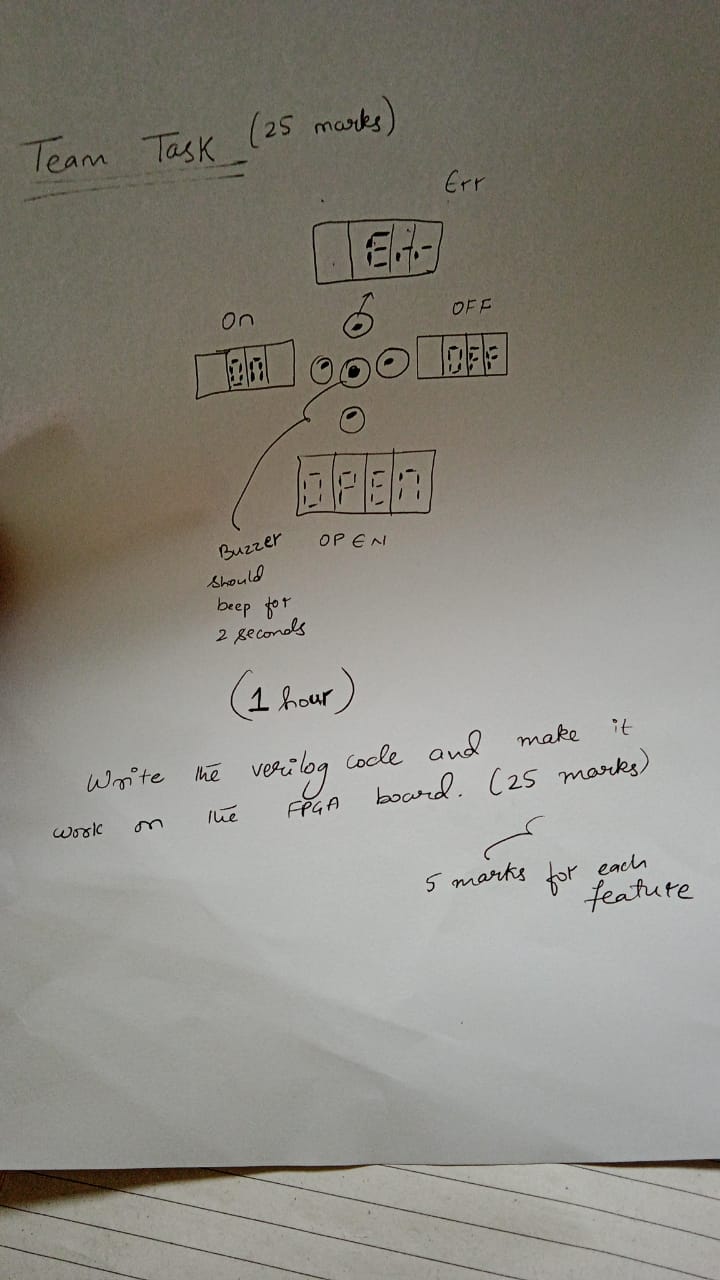 Team Task (25 marks)
Err
Err
On
On
OFF
OFF
OPEN
OPEN
Buzzer
should
beep for
2 seconds
(1 hour)
Write the verilog code and make it
work on the FPGA board. (25 marks)
5 marks for each
feature